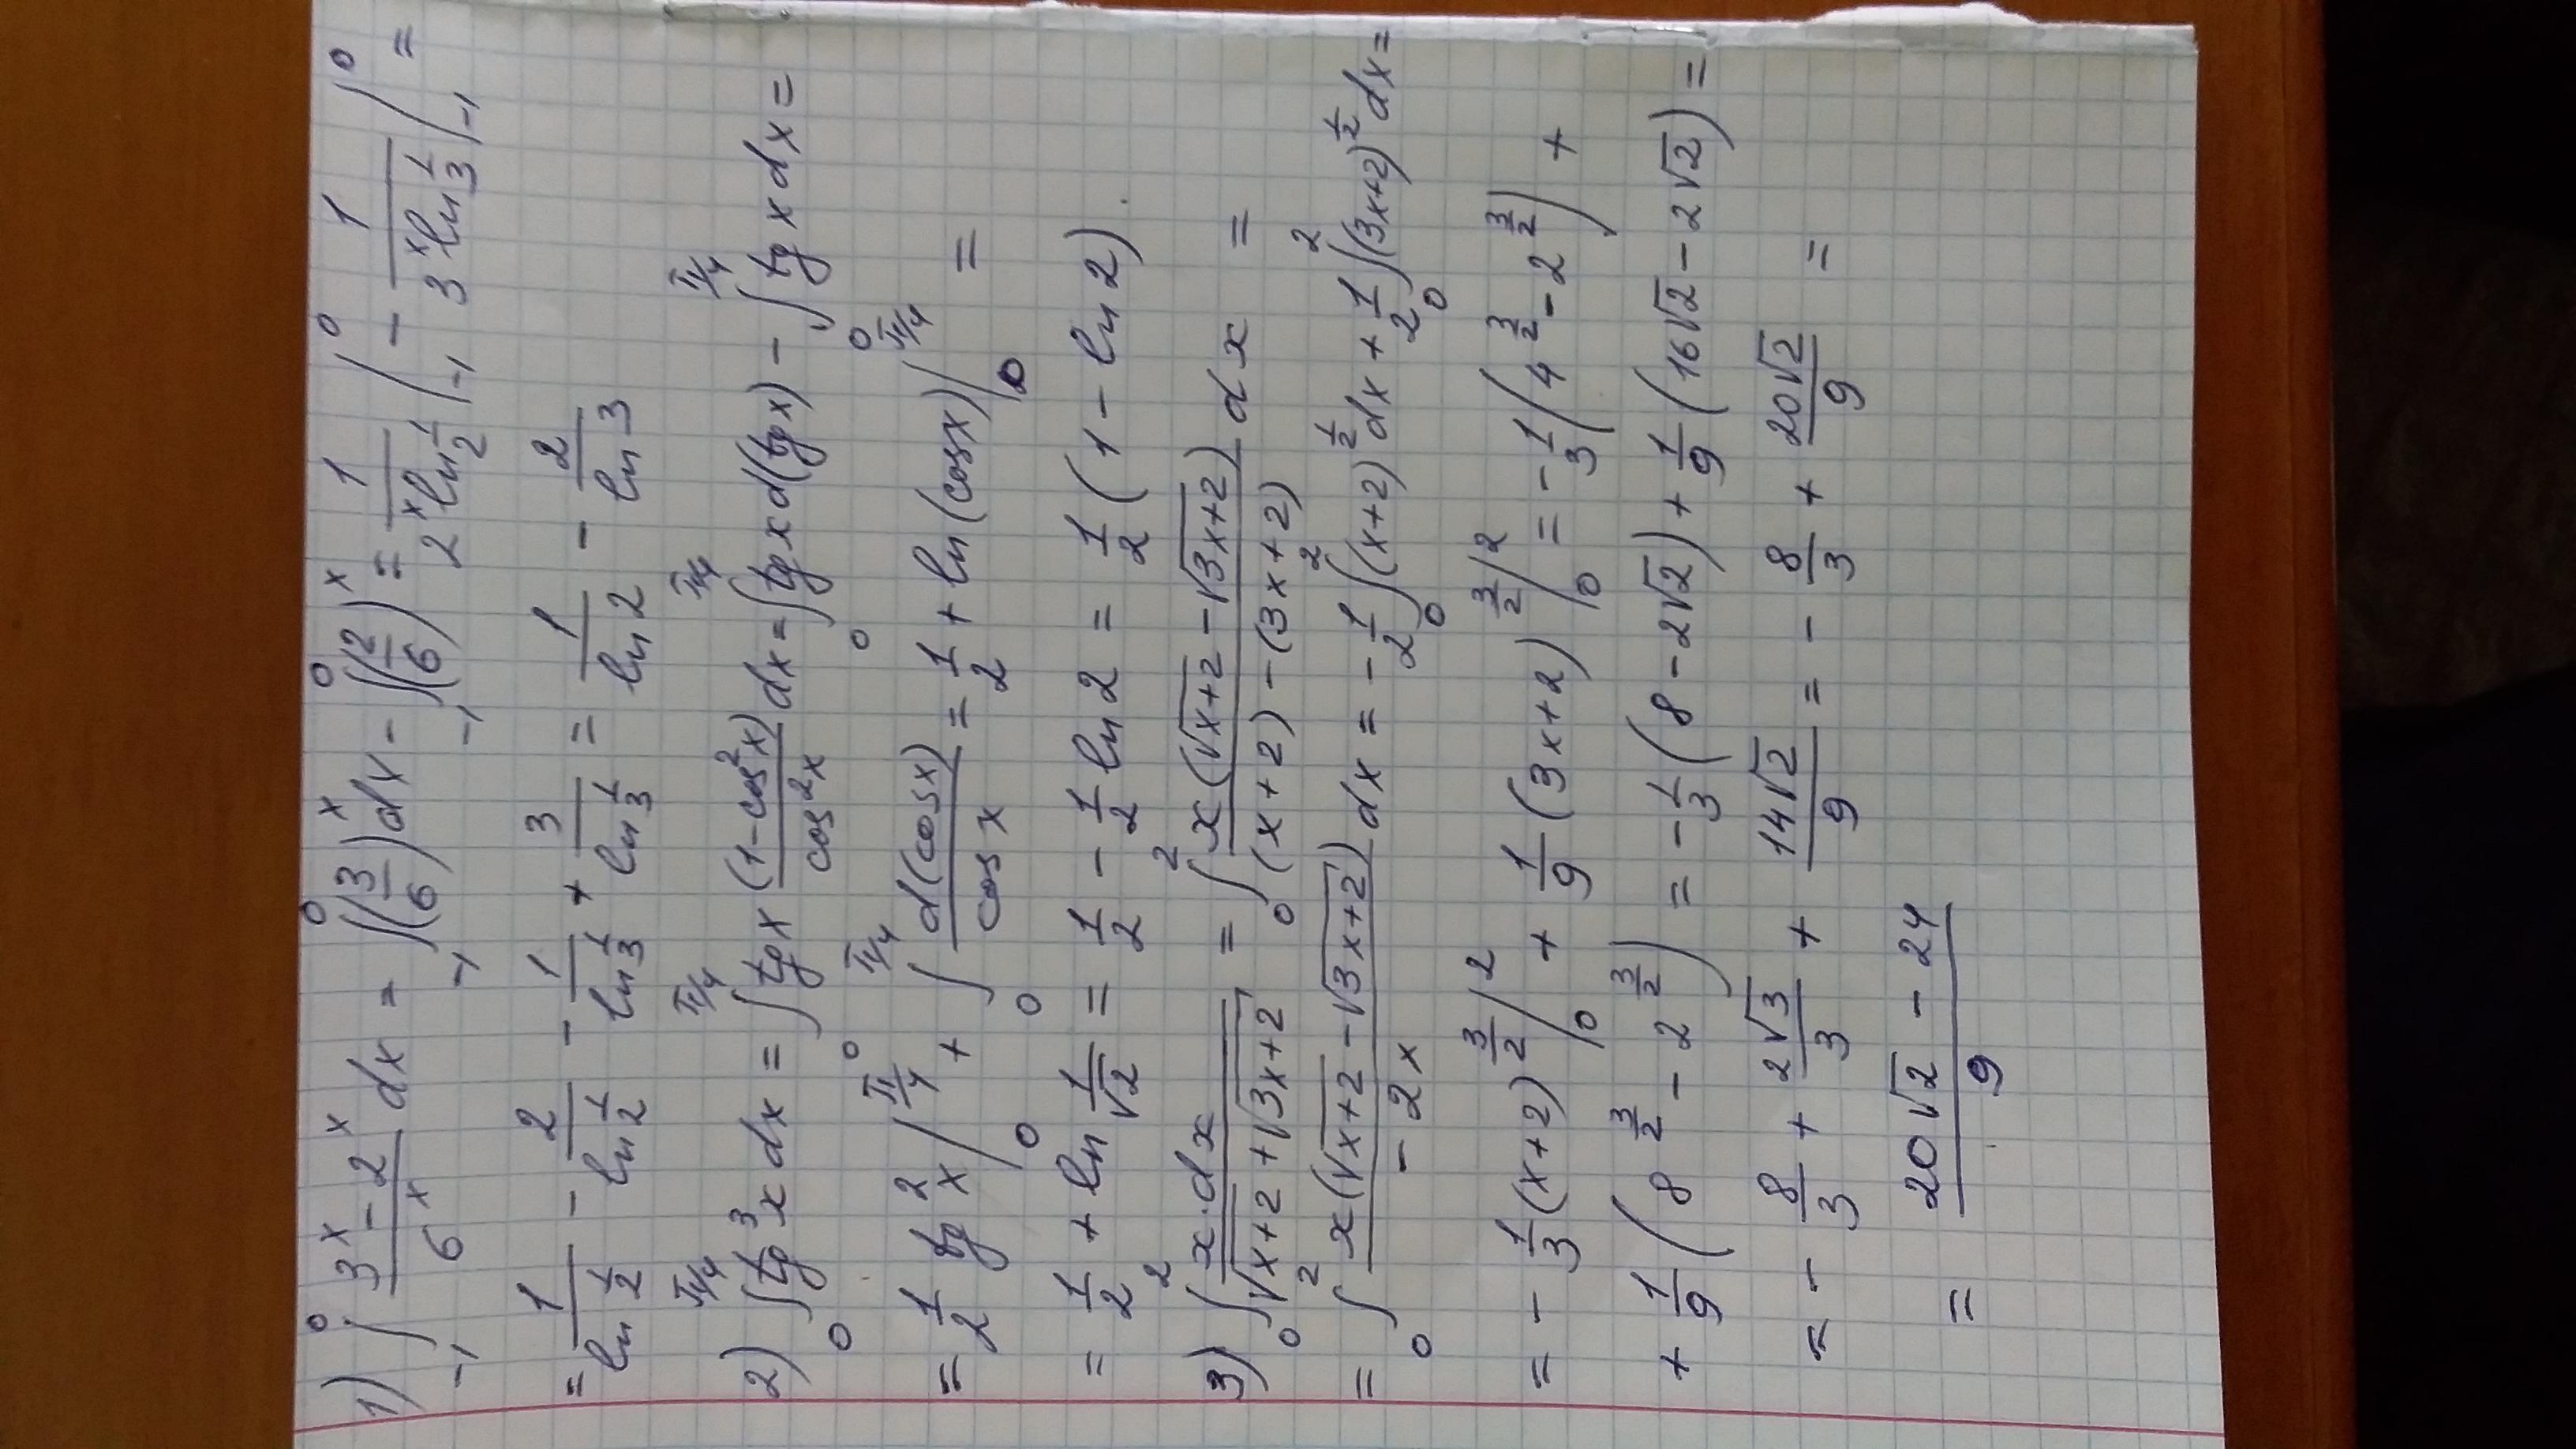 1) ∫₋₁⁰ (3ˣ - 2ˣ)/6ˣ dx = ∫₋₁⁰ (3/6)ˣ dx - ∫₋₁⁰ (2/6)ˣ = 1/(2ˣ ln 1/2) |₋₁⁰ - 1/(3ˣ ln 1/3) |₋₁⁰ =
= 1/(ln 1/2) - 2/(ln 1/2) - 1/(ln 1/3) + 3/(ln 1/3) = 1/(ln 2) - 2/(ln 3)
2) ∫₀^(π/4) tg³x dx = ∫₀^(π/4) tg x (1-cos²x)/(cos²x) dx = ∫₀^(π/4) tg x d(tg x) - ∫₀^(π/4) tg x dx =
= 1/2 tg²x |₀^(π/4) + ∫₀^(π/4) d(cos x)/(cos x) = 1/2 + ln(cos x) |₀^(π/4) =
= 1/2 + ln 1/√2 = 1/2 - 1/2 ln 2 = 1/2 (1 - ln 2).
3) ∫₀² x·dx/(√(x+2) + √(3x+2)) = ∫₀² x(√(x+2) - √(3x+2))/((x+2) - (3x+2)) dx =
= ∫₀² x(√(x+2) - √(3x+2))/(-2x) dx = - 1/2 ∫₀² (x+2)^(1/2) dx + 1/2 ∫₀² (3x+2)^(1/2) dx =
= - 1/3 (x+2)^(3/2) |₀² + 1/9 (3x+2)^(3/2) |₀² = - 1/3 (4^(3/2) - 2^(3/2)) +
+ 1/9 (8^(3/2) - 2^(3/2)) = - 1/3 (8 - 2√2) + 1/9 (16√2 - 2√2) =
= - 8/3 + 2√3/3 + 14√2/9 = - 8/3 + 20√2/9 =
= (20√2 - 24)/9